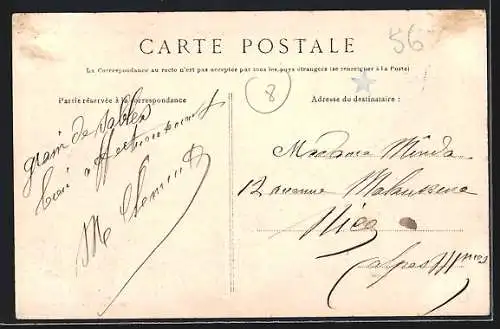 CARTE POSTALE
56
La Correspondance au recto n'est pas acceptée par tous les pays étrangers (se renseigner à la Poste)
8
Partie réservée à la correspondance
grain de sables
affectueusement
M
Adresse du destinataire :
Madame Minda
12 avenue
Nice
Alpes Mmes